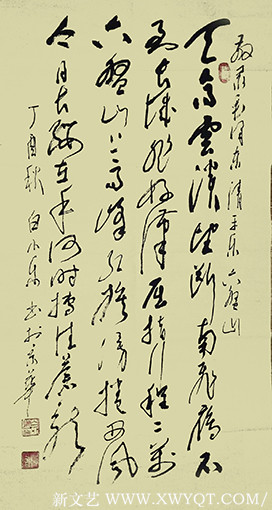 敬录毛泽东清平乐六盘山
天高雲淡望断南飛雁不
到长城非好漢屈指行程二萬
六盤山上高峰红旗漫捲西風
今日长缨在手何时缚住蒼龍
丁酉秋 白小东 书於京華
新文艺/ WWW.XWYQT.COM/